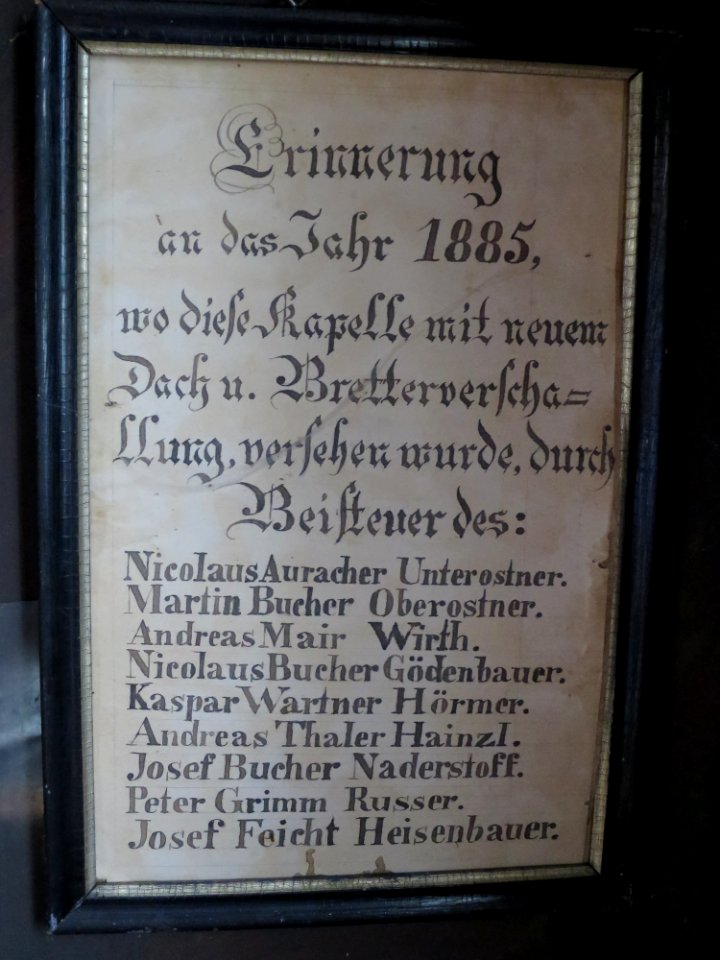 Erinnerung
an das Jahr 1885,
wo diese Kapelle mit neuem
Dach u. Bretterverscha=
llung, versehen wurde, durch
Beisteuer des:
Nicolaus Auracher Unterostner.
Martin Bucher Oberostner.
Andreas Mair Wirth.
Nicolaus Bucher Gödenbauer.
Kaspar Wartner Hörmer.
Andreas Thaler Hainzl.
Josef Bucher Naderstoff.
Peter Grimm Russer.
Josef Feicht Heisenbauer.